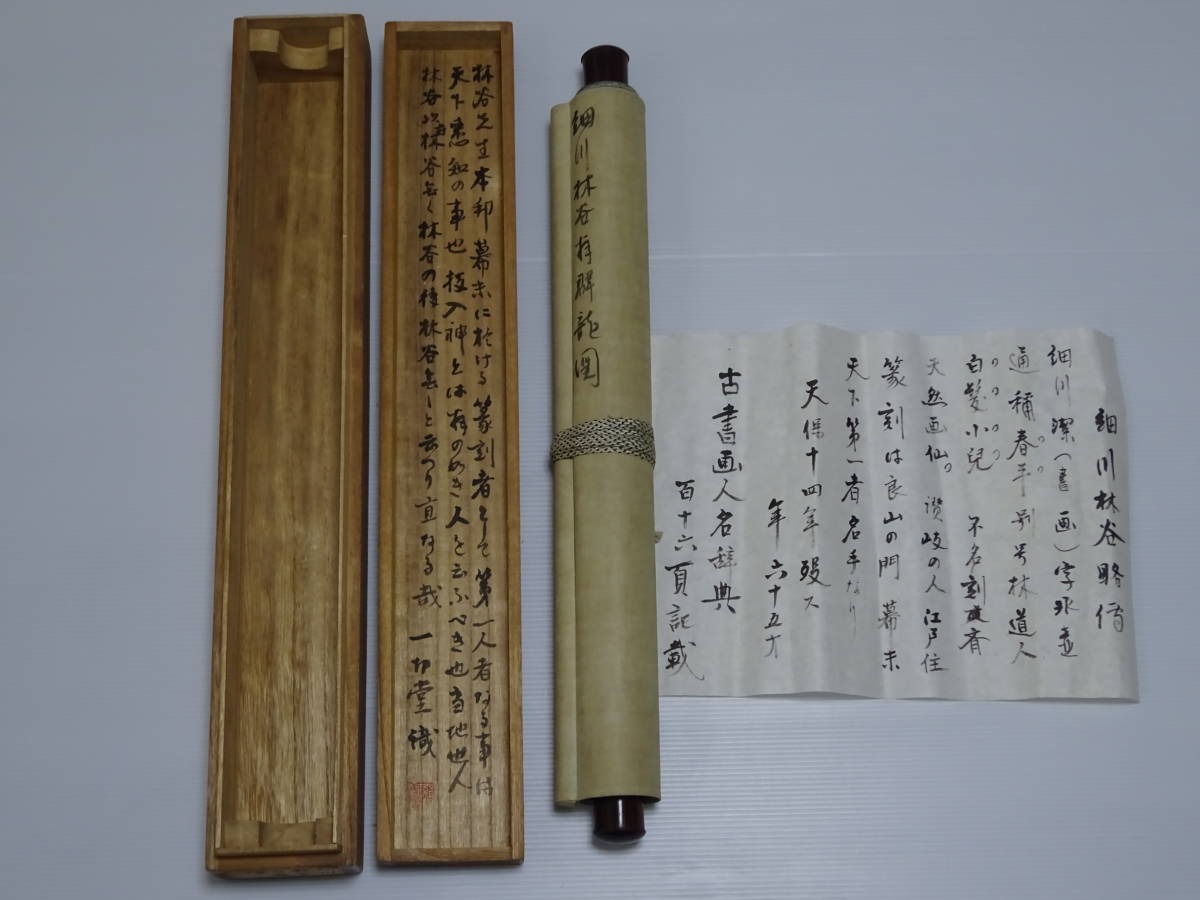 林谷先生本邦幕末に於ける篆刻者として第一人者なる事は
天下悉知の事也 技入神とは斯のめき人を云ふべき也 当地世人
林谷以林谷無く林谷の後林谷無しと云つり宜なる哉 一切堂識
細川林谷 群龍図
細川林谷略伝
細川潔(書画)字氷壺
通称春平 別号林道人
白髪小兒 不名刻斉
天然画仙 讃岐の人 江戸住
篆刻は良山の門 幕末
天下第一者名手なり
天保十四年歿ス
年六十五才
古書画人名辞典
百十六頁記載